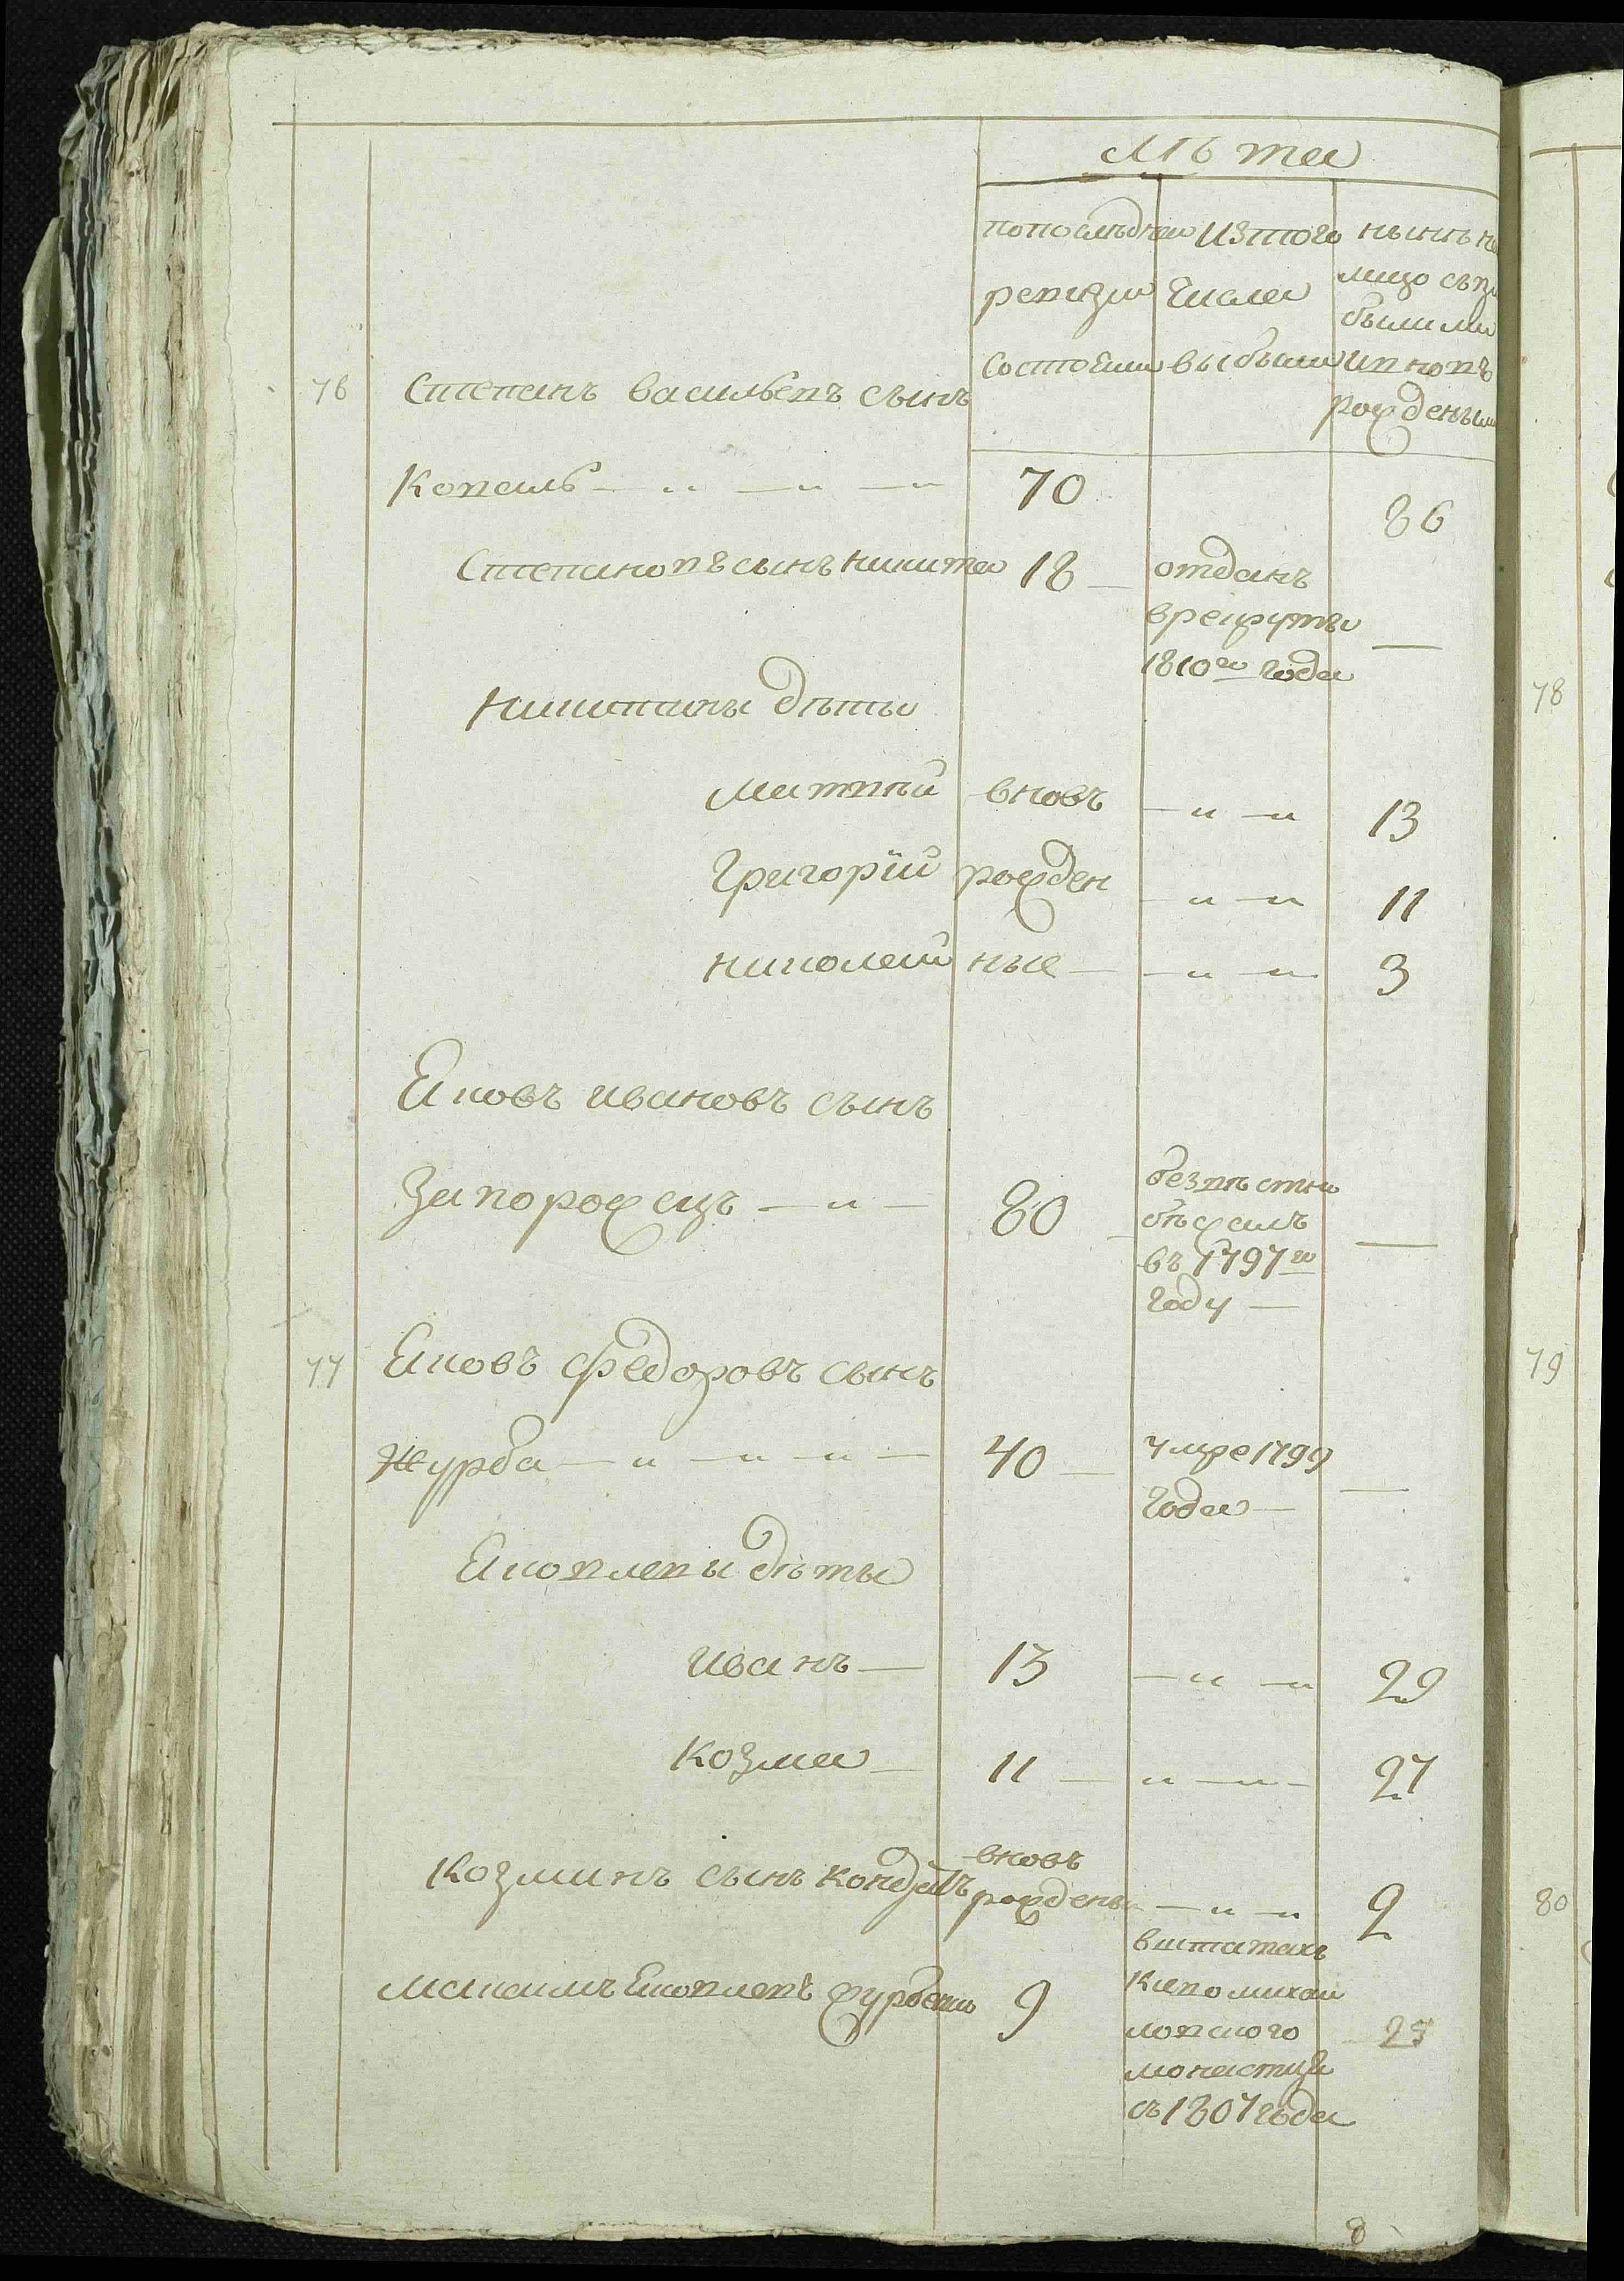 Лѣта
попоследней изтого нынѣ на
ревизии числа лицо съпри
былыми
состояли выбыли ивновь
рожденными
76 Степанъ васильевъ сынъ
Коваль 70 86
Степановъ сынъ никита 18 отданъ
врекруты
1810го года
Никитины дѣты
матвѣй вновъ 13
Григорїй рожден 11
николай ные 3
Яковъ ивановъ сынъ
Запорожецъ 80 безвѣстно
бѣжалъ
въ 1797го
году
77 Яковъ Федоровъ сынъ
Журба 40 умре 1799
года
Яковлевы дѣты
иванъ 13 29
Козма 11 27
Козминъ сынъ Кондратъ вновъ
рожденъ 2
Максимъ Яковлевъ журбенко 9 вштатахъ
Киевомихай
ловского
монастиря
съ 1807 года 25
78
79
80
8